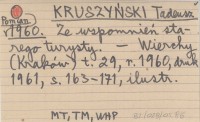 KRUSZYŃSKI Tadeusz
Pomian
r1960. Ze wspomnień sta-
rego turysty. — Wierchy
(Kraków) t. 29, r. 1960, druk
1961, s. 163-171, ilustr.
MT, TM, WHP